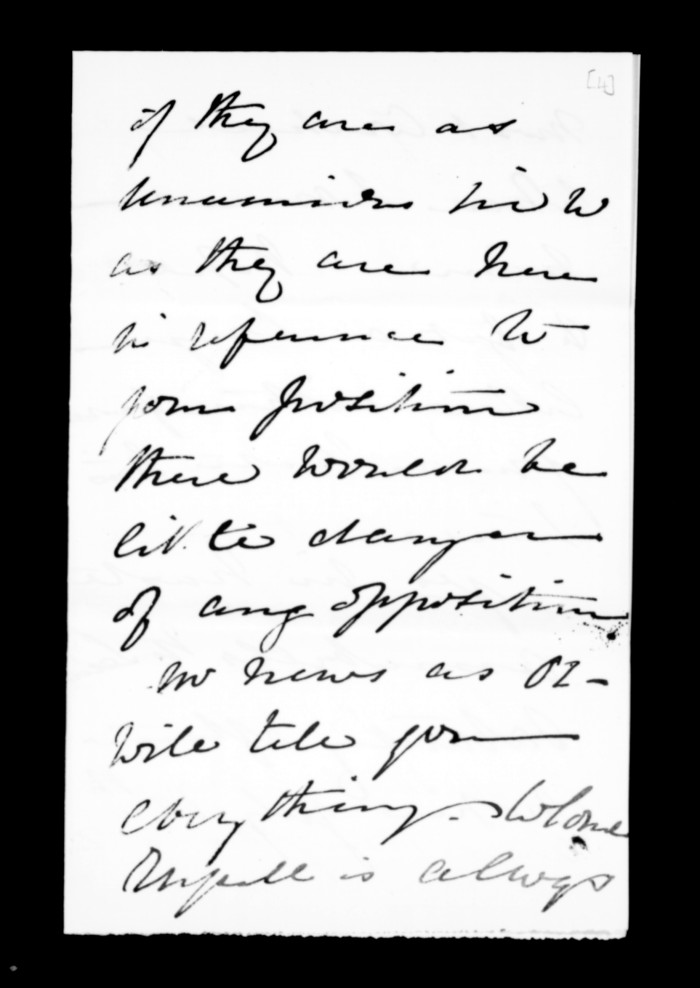 [4]
if they are as
unanimous
as they are here
in reference to
your position
there would be
little danger
of any opposition
no news as
will tell you
everything. Colonel
Russell is always